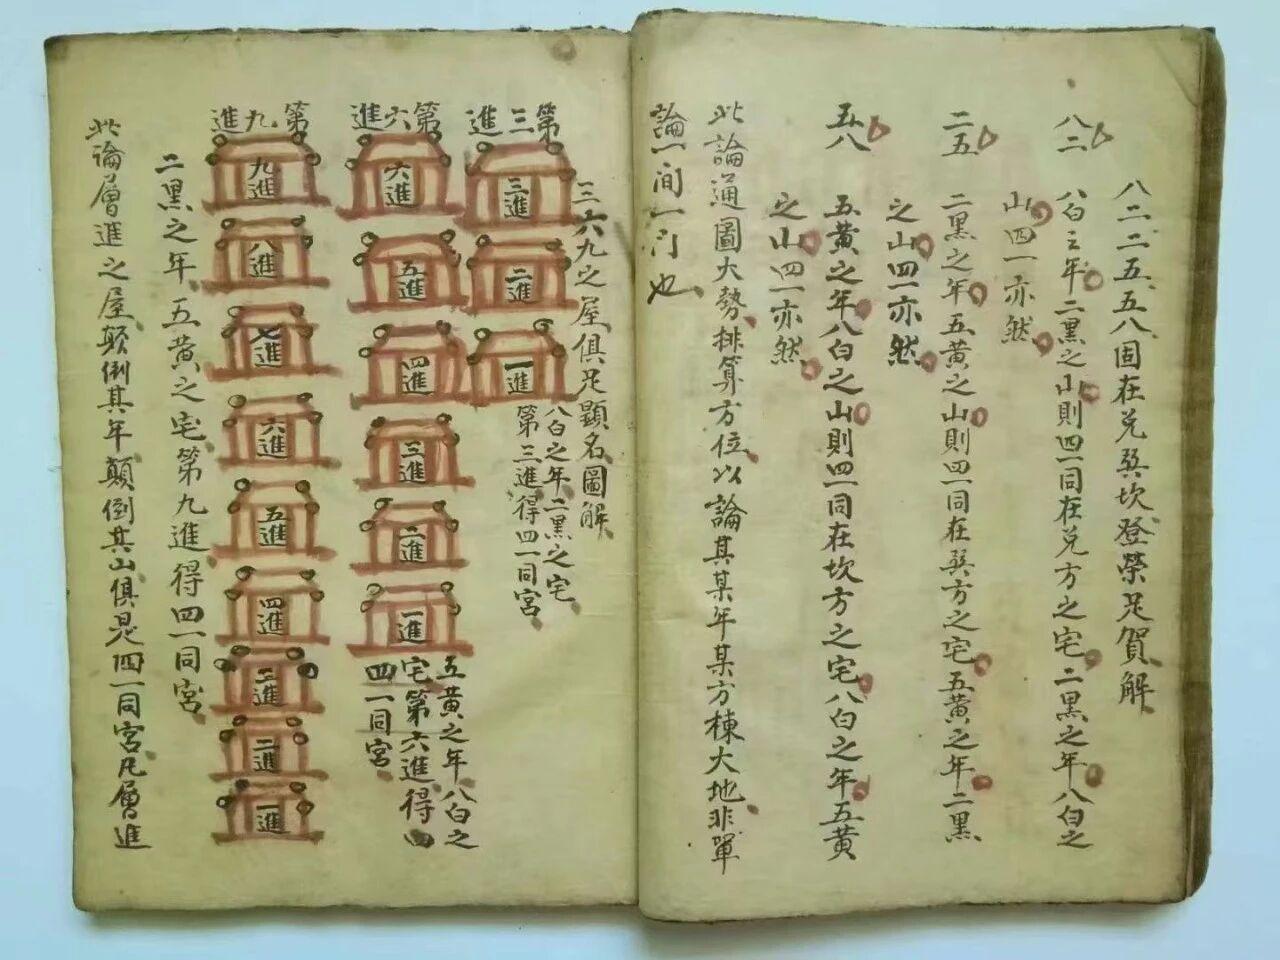 八二二五五八固在兌巽坎登榮足賀解
八二
八白之年二黑之山則四一同在兌方之宅二黑之年八白之
山四一亦然
二五
二黑之年五黃之山則四一同在巽方之宅五黃之年二黑
之山四一亦然
五八
五黃之年八白之山則四一同在坎方之宅八白之年五黃
之山四一亦然
此論通圖大勢排算方位以論其某年某方棟大地非單
論一間一门也
三六九之屋俱足顯名圖解
第三進
三進
二進
一進
八白之年二黑之宅
第三進得四一同宮
第六進
六進
五進
四進
三進
二進
一進
五黃之年八白之
宅第六進得四
四一同宮
第九進
九進
八進
七進
六進
五進
四進
三進
二進
一進
二黑之年五黃之宅第九進得四一同宮
此論層進之屋顛倒其年顛倒其山俱是四一同宮凡層進